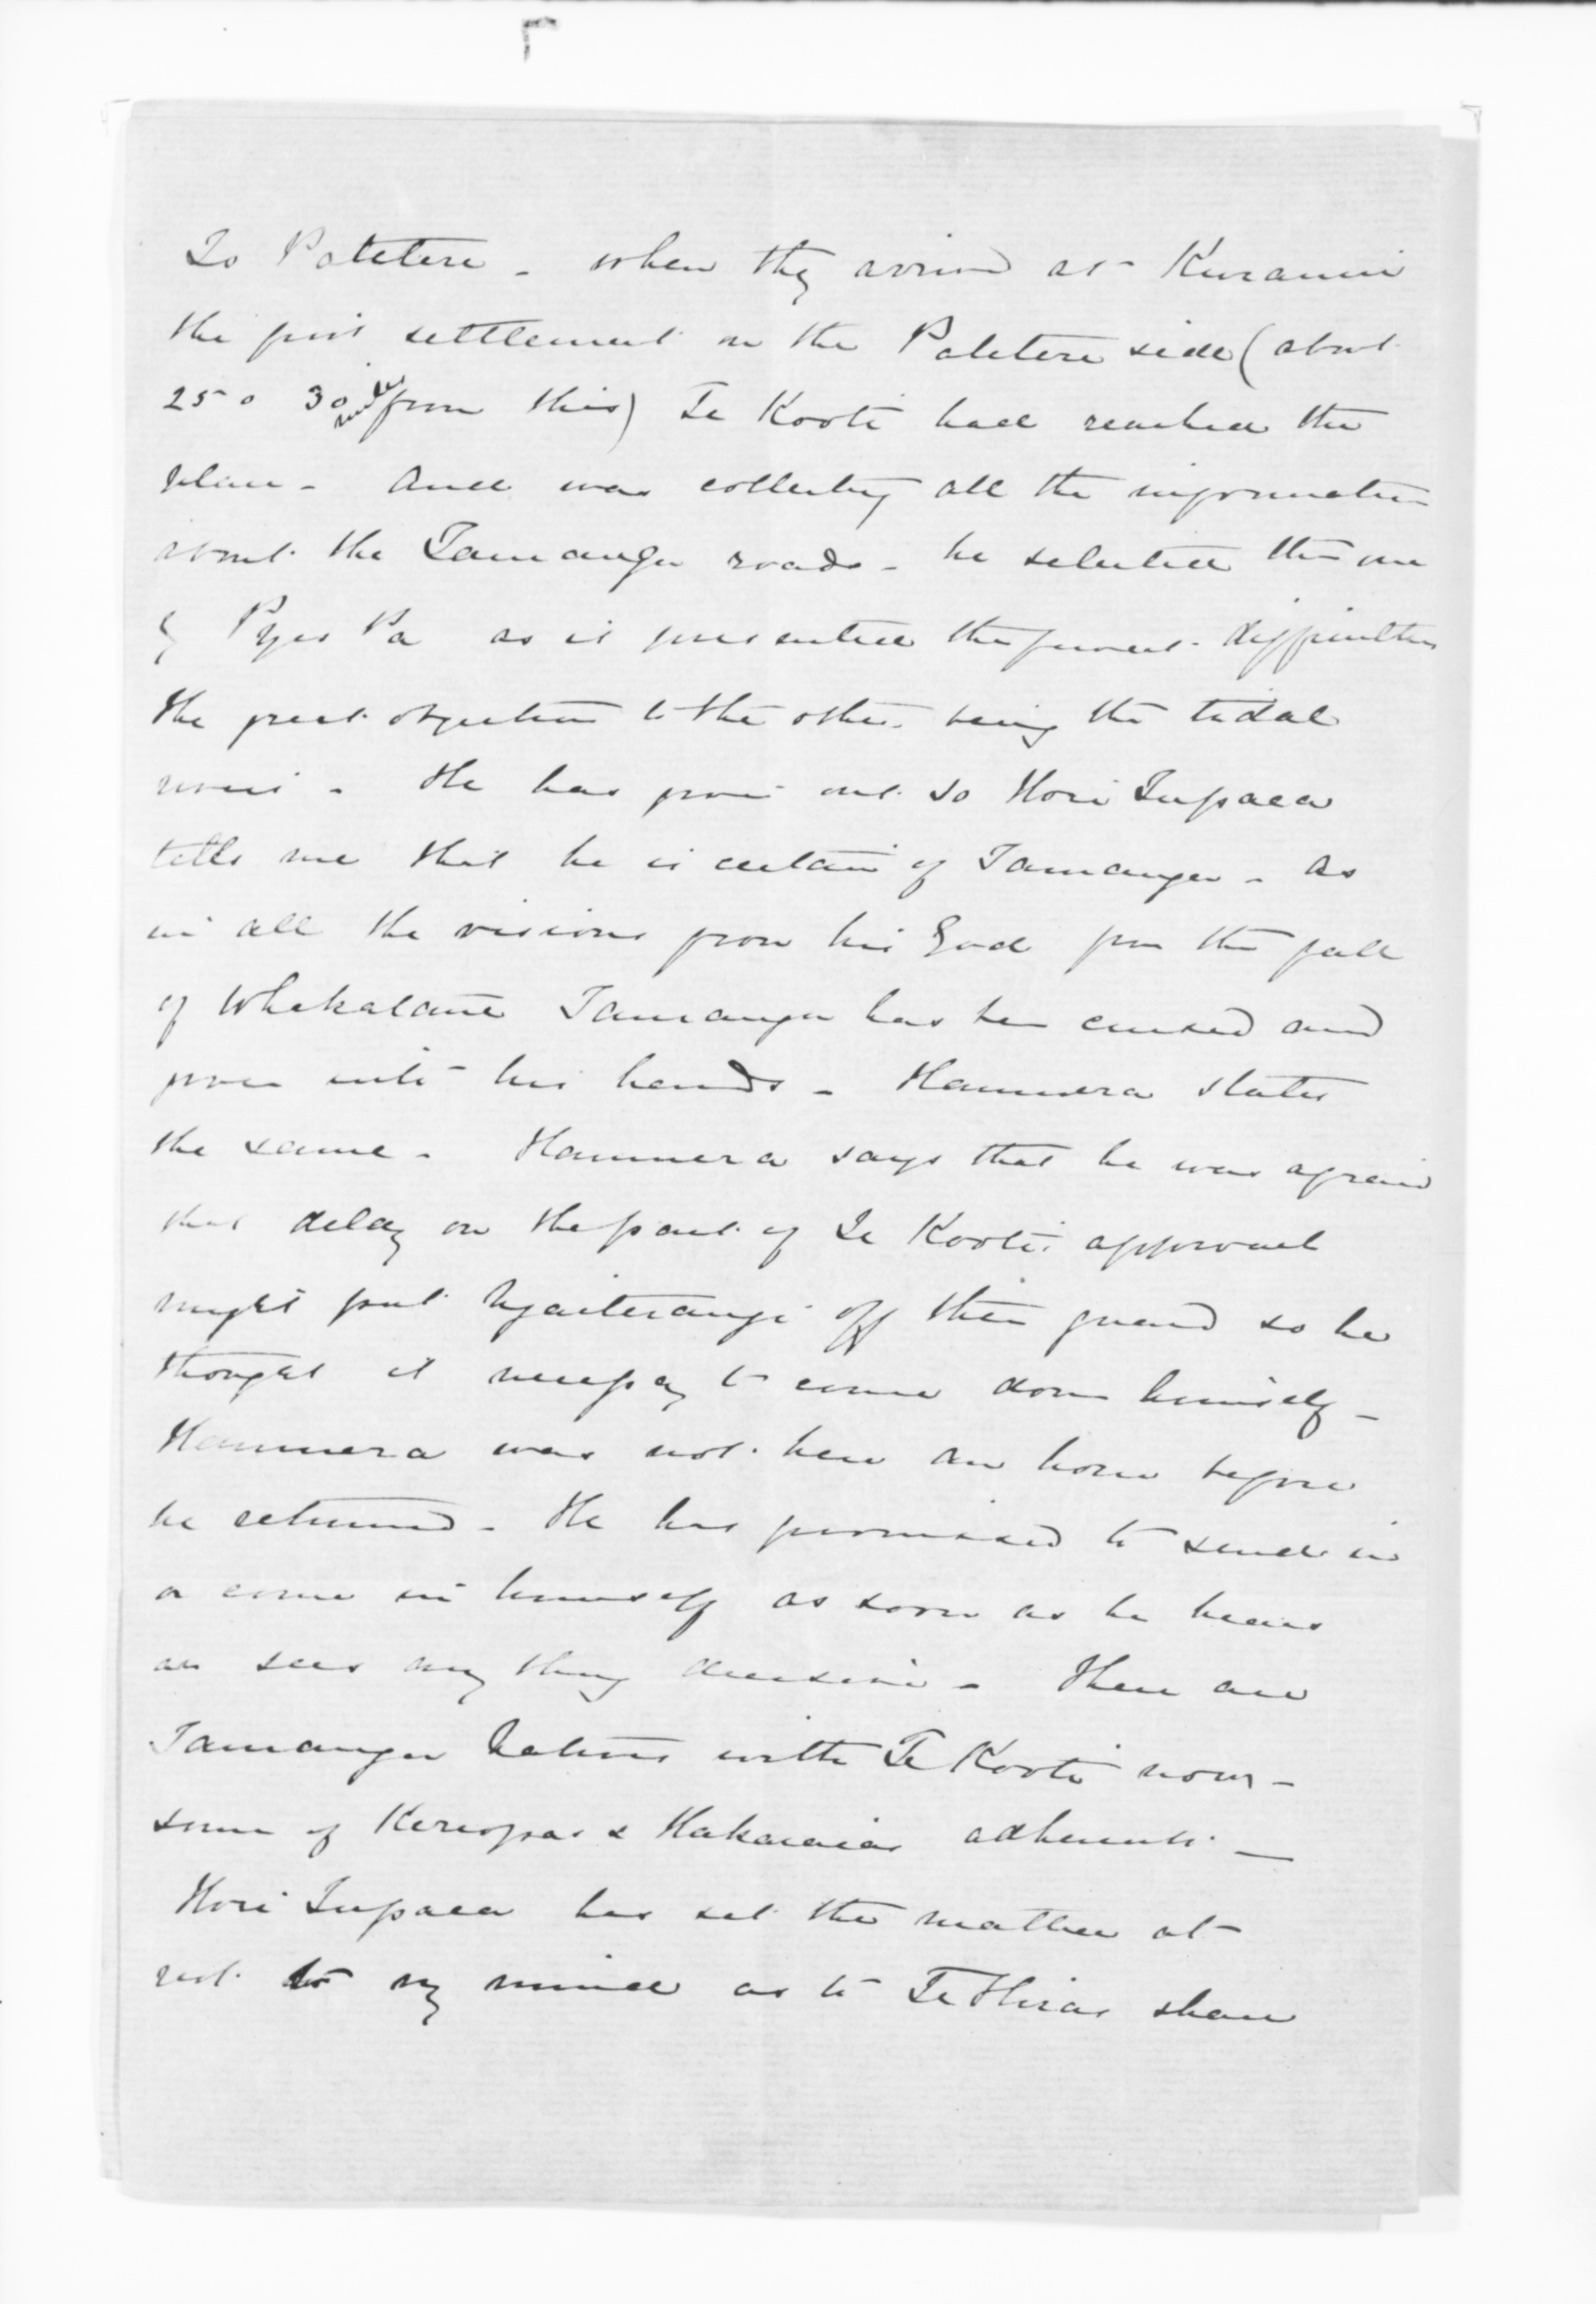 To Patetere - when they arrived at Kuranui
the first settlement on the Patetere side (about
25 o 30 miles from this) Te Kooti had reached the
place - And was collecting all the information
about the Tauranga roads - he selected the one
by Pyes Pa as it presented the fewest difficulties
the great objection to the other being the tidal
rivers - He has given out so Hori Tupaea
tells me that he is certain of Tauranga - as
in all the visions from his God from the fall
of Whakatane Tauranga has been cursed and
given into his hands - Hamuera states
the same - Hamuera says that he was afraid
that delay on the part of Te Kooti's approach
might put Ngaiterangi off their guard so he
thought it necessary to come down himself -
Hamuera was not here an hour before
he returned - He has promised to send in
or come in himself as soon as he hears
or sees any thing decisive - There are
Tauranga Natives with Te Kooti now -
some of Kereopas & Hakaraias adherents -
Hori Tupaea has set the matter at
rest to my mind as to Te Hiras share